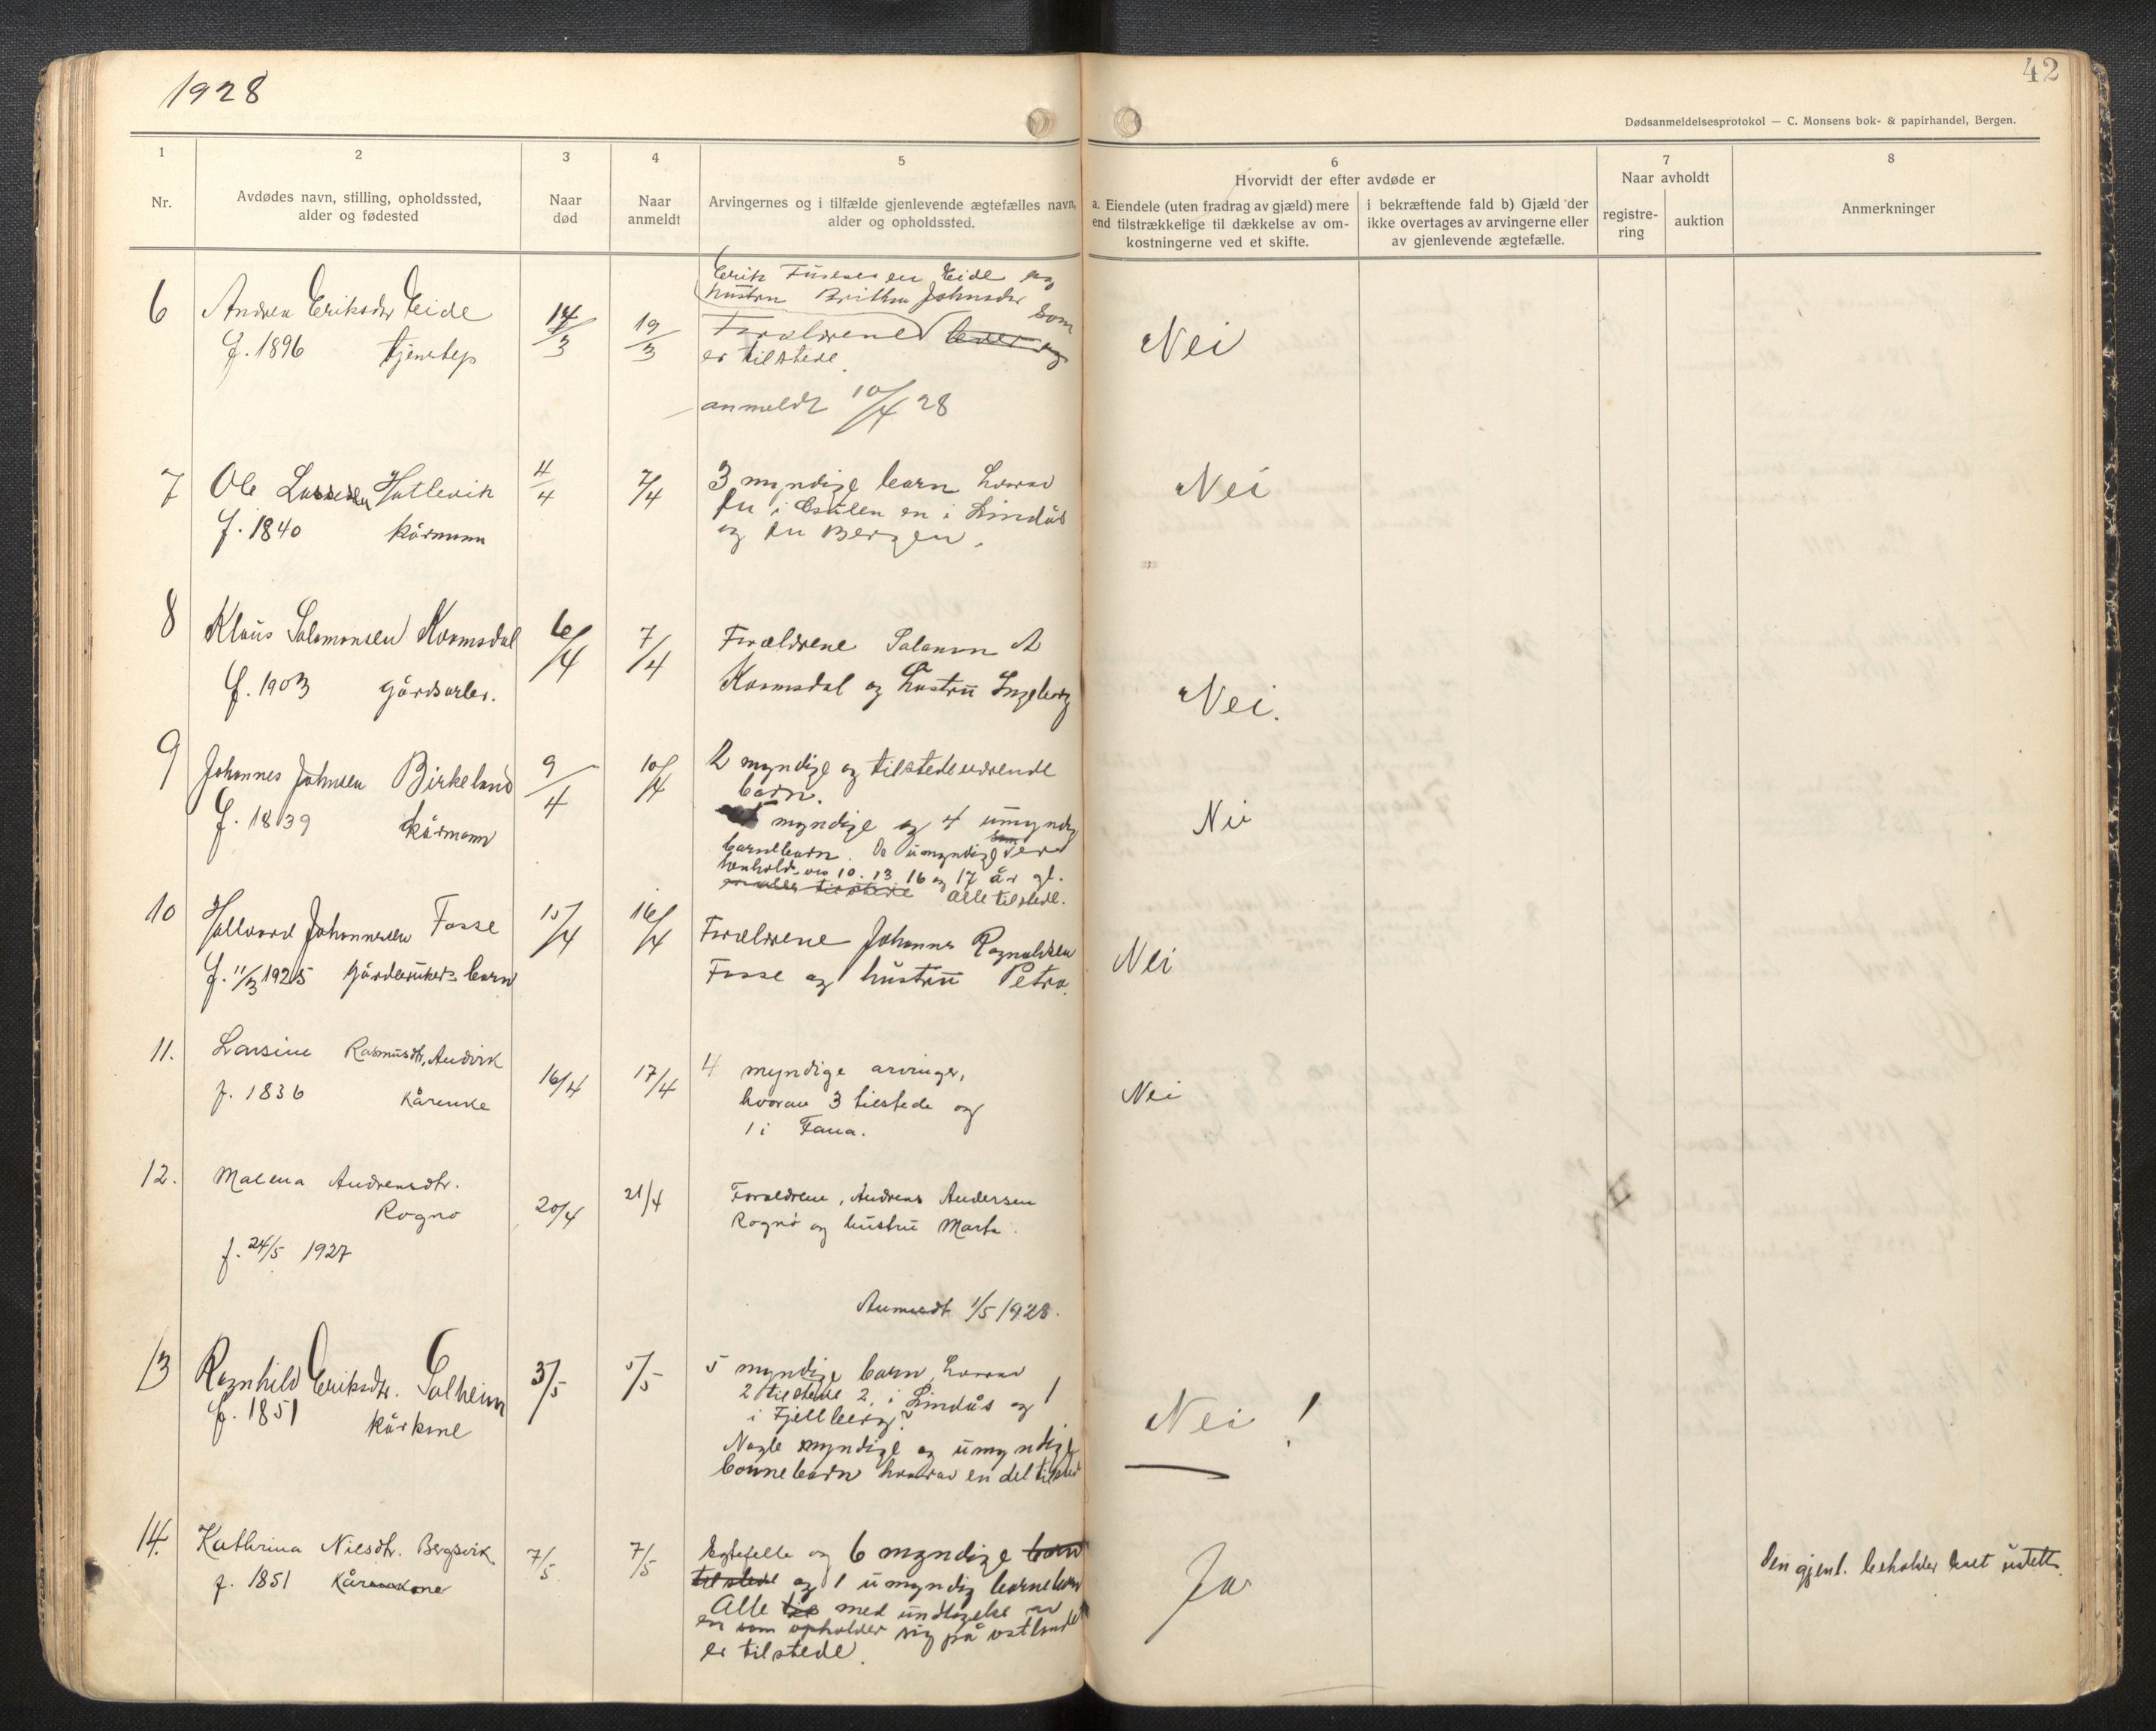 1928
42
Dødsanmeldelsesprotokol — C. Monsens bok- & papirhandel, Bergen.
1
2
3
4
5
6
7
8
Nr.
Avdødes navn, stilling, opholdssted,
alder og fødested
Naar
død
Naar
anmeldt
Arvingernes og i tilfælde gjenlevende ægtefælles navn,
alder og opholdssted.
Hvorvidt der efter avdøde er
a. Eiendele (uten fradrag av gjæld) mere
end tilstrækkelige til dækkelse av om-
kostningerne ved et skifte.
i bekræftende fald b) Gjæld der
ikke overtages av arvingerne eller
av gjenlevende ægtefælle.
Naar avholdt
registre-
ring
auktion
Anmerkninger
6
Andrea Eriksdtr Eide
f. 1896
14/3
19/3
Erik Eide og
hustru Johnsdtr som
Forældrene
er tilstede.
Nei
anmeldt 10/4 28
7
Ole Lassesen Hatlevik
f. 1840 kårmann
4/4
7/4
3 myndige barn hvorav
en i Lindås
og Bergen.
Nei
8
Klaus Salamonsen Kormsdal
f. 1903 gårdsarb.
6/4
7/4
Forældrene Salamon A
Kormsdal og hustru Ingeborg
Nei.
9
Johannes Johnsen Birkeland
f. 1839 kårmann
9/4
10/4
2 myndige og tilstedeværende
barn.
myndige og 4 umyndig
barnebarn. De umyndige som er
henholdsvis 10. 13 16 og 17 år gl.
er alle tilstede Alle tilstede.
Nei
10
Hallvard Johannessen Fosse
f. 11/3 1925 gårdbrukers barn
15/4
16/4
Forældrene Johannes Ragnvaldsen
Fosse og hustru Petra.
Nei
11.
Larsine Rasmusdtr, Andvik
f. 1836 kårenke
16/4
17/4
4 myndige arvinger,
hvorav 3 tilstede og
1 i Fana.
Nei
12.
Malena Andreasdtr.
Rognø
f. 24/5 1927
20/4
21/4
Forældrene, Andreas Andersen
Rognø og hustru Marta.
Anmeldt 1/5 1928.
13
Ragnhild Eriksdtr. Solheim
f. 1851
kårkone
3/5
5/5
5 myndige barn, hvorav
2 tilstede 2 i Lindås og 1
i Fjellberg
Nogle myndige og umyndige
bonnebarn hvorav en del tilsted
Nei!
14.
Kathrina Nilsdtr. Bergsvik
f. 1851 Kårkone
7/5
7/5
Egtefelle og 6 myndige barn
tilstede og 1 umyndig barnebarn
Alle med undtagelse av
en som opholder sig på østlandet
er tilstede.
Ja
Den gjenl. beholder boet uskiftet.